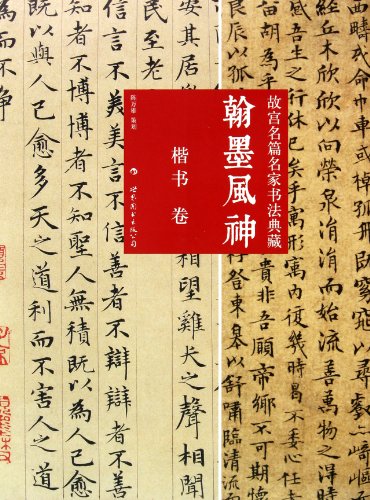 故宫名篇名家书法典藏
翰墨風神
楷书 卷
陈万雄 策划
世界图书出版公司
丘木欣欣以向榮泉涓涓而始流善萬物之得
感吾生之行
曷不委心任
非吾願帝鄉不可期
登東皋以舒嘯臨清流
安其居
相望雞犬之聲相聞
民至老
信言不美美言不信善者不辯辯者不
者不博博者不知聖人無積既以為人己愈
以與人己愈多天之道利而不害人之道
為而不爭